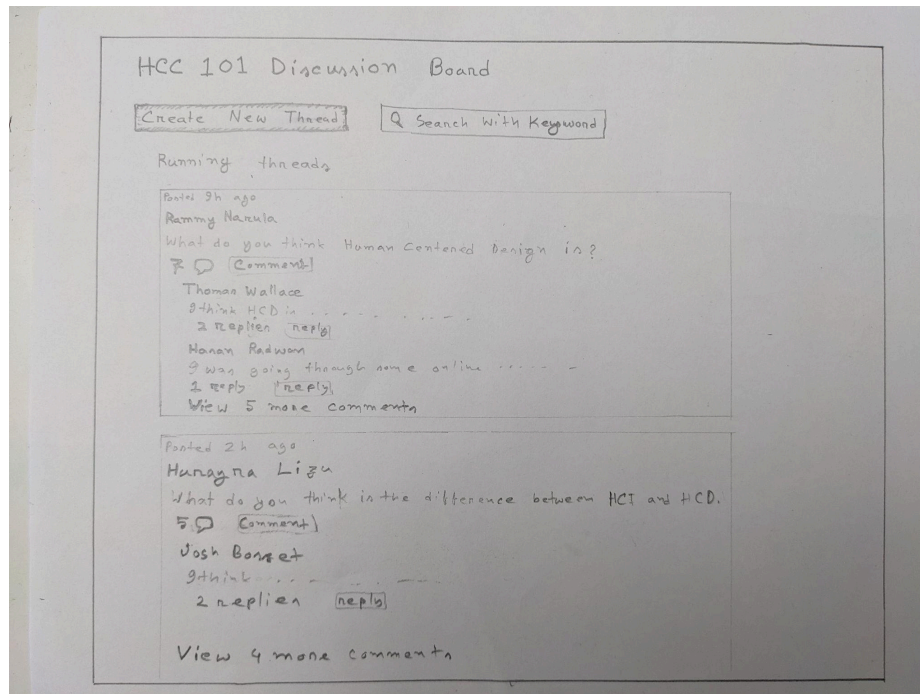 HCC 101 Discussion Board
Create New Thread
Search with Keyword
Running threads
Posted 9h ago
Rammy Narula
What do you think Human Centered Design is?
7 Comment
Thomas Wallace
I think HCD is . . . . . . . . . .
2 replies reply
Hanan Radwan
I was going through some online ..... -
1 reply reply
View 5 more comments
Posted 2h ago
Lizu
What do you think is the difference between HCI and HCD.
5 Comment
Josh
I think .... - . - . ---
2 replies reply
View 4 more comments